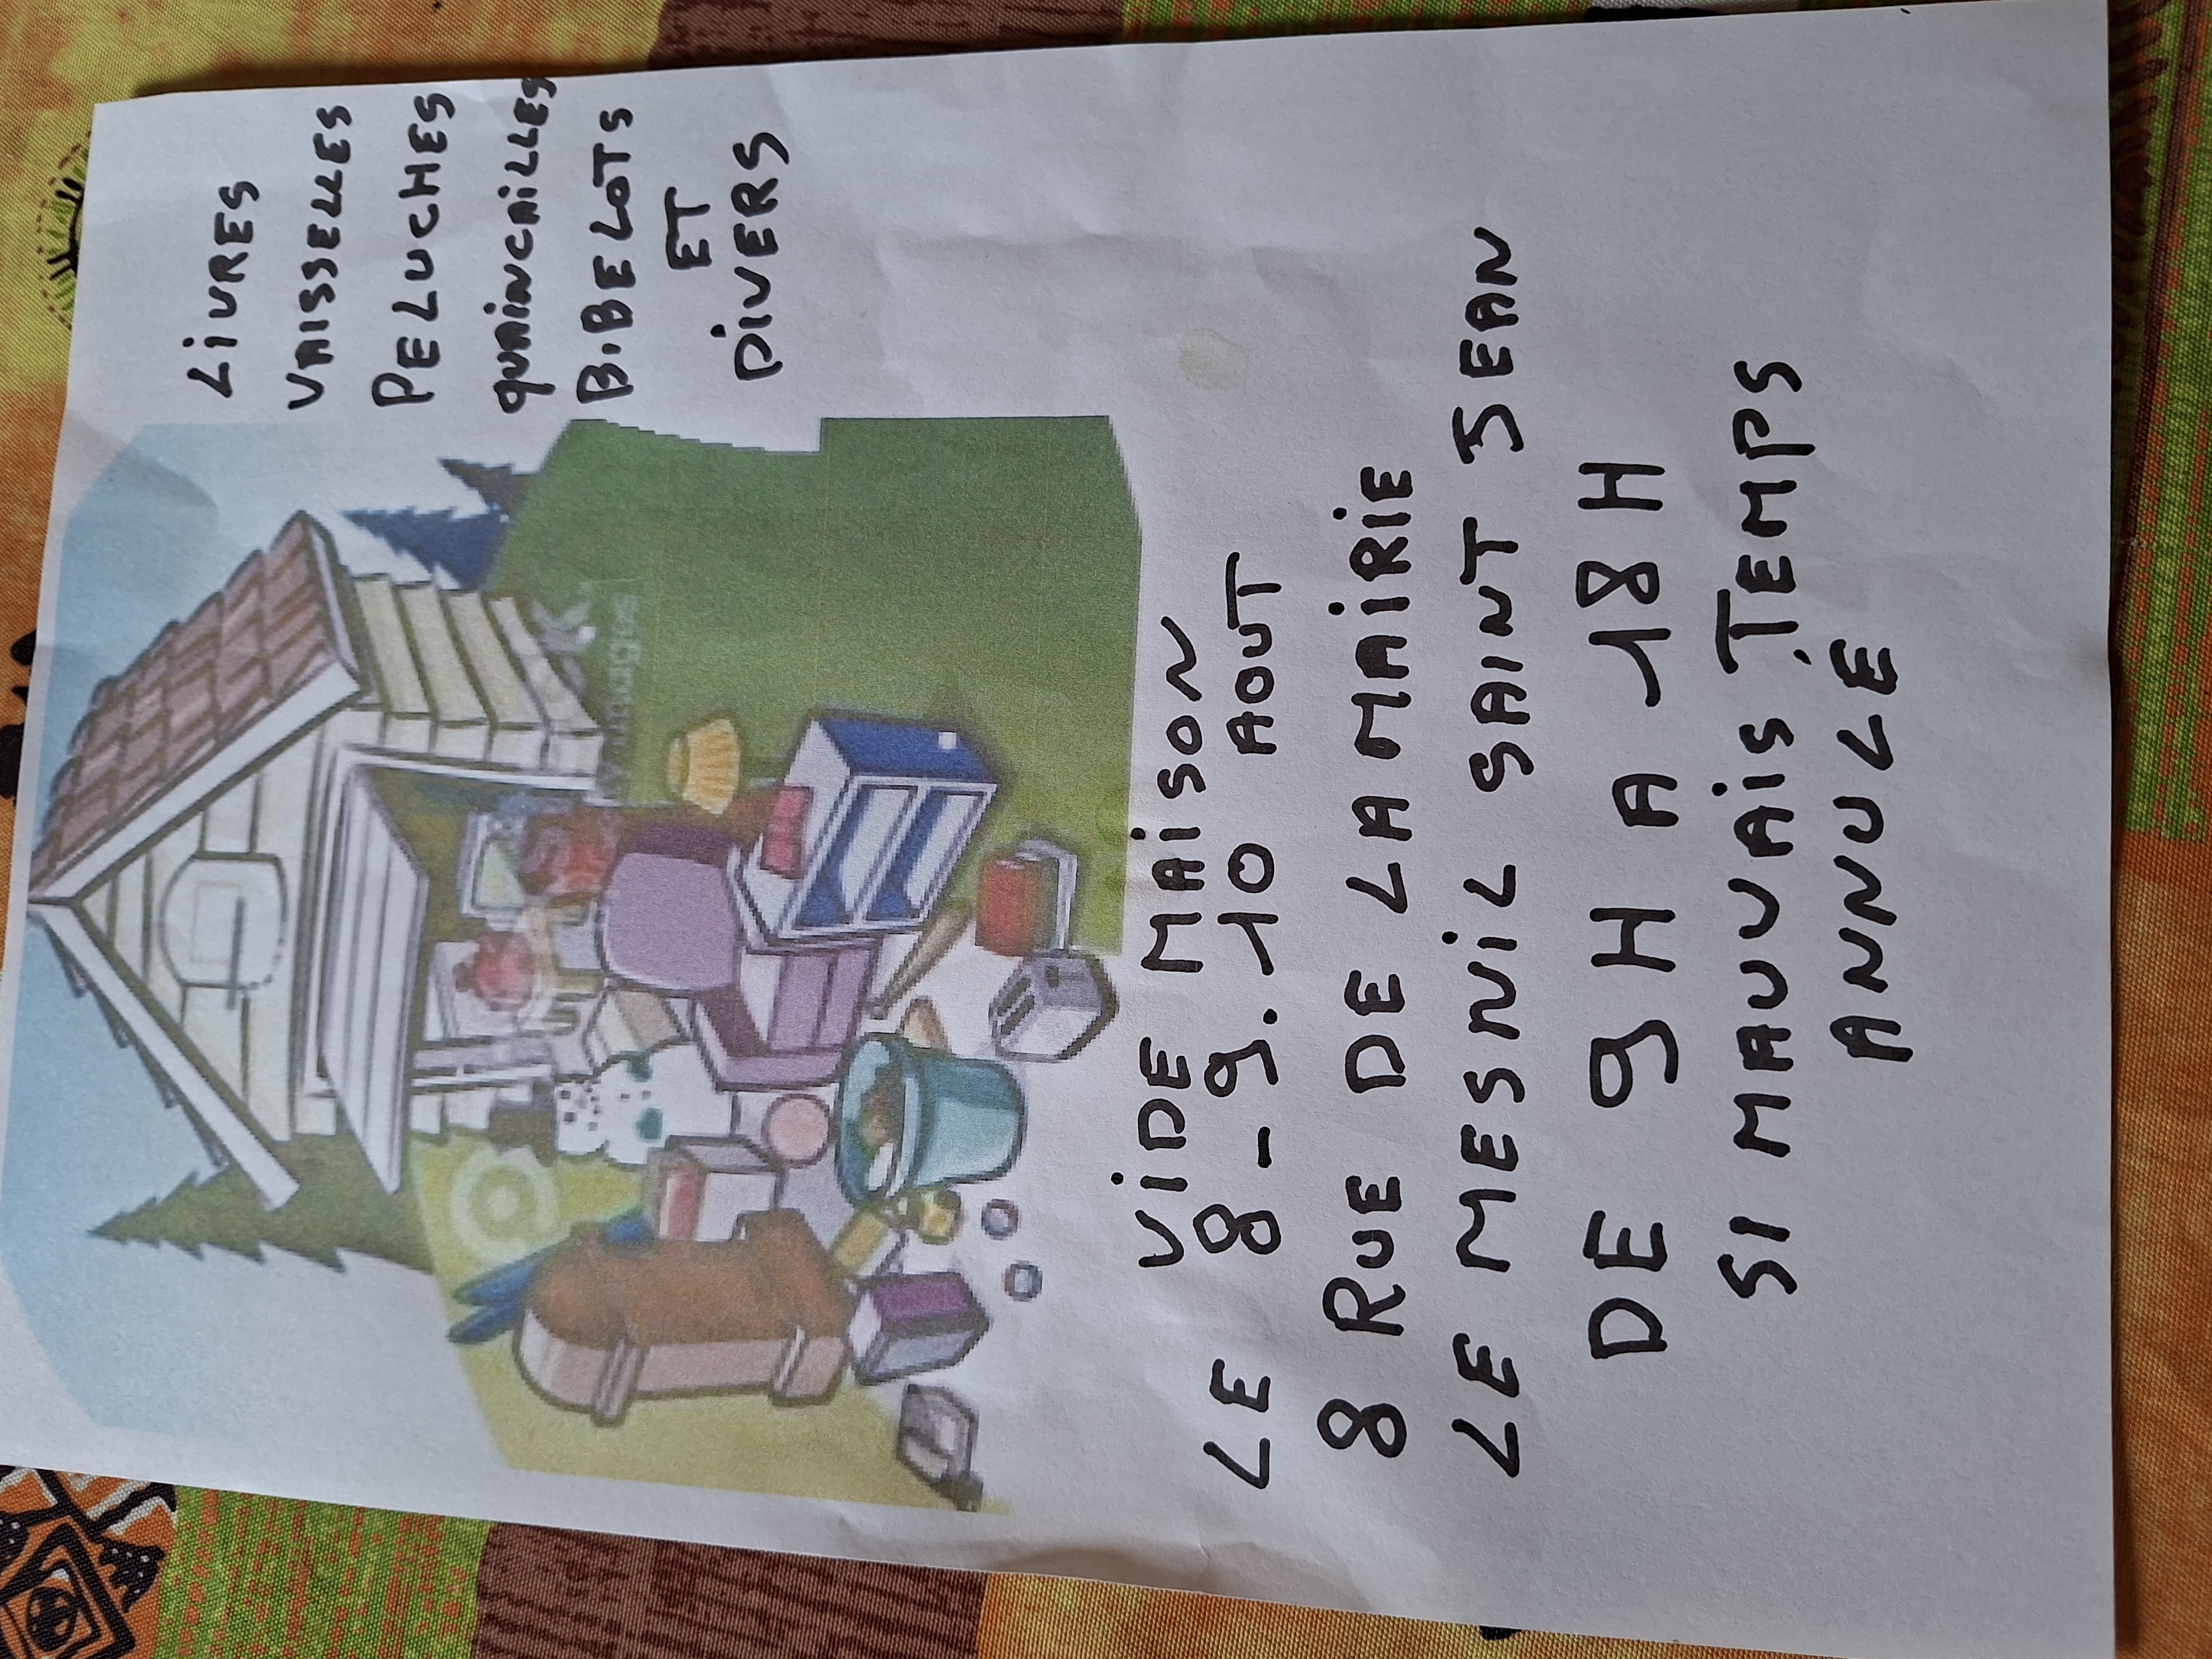 LIVRES
VAISSELLES
PELUCHES
QUAINCAILLES
BIBELOTS
ET
DIVERS
VIDE MAISON
LE 8-9.10 AOUT
8 RUE DE LA MAIRIE
LE MESNIL SAINT JEAN
DE 9H A 18H
SI MAUVAIS TEMPS
ANNULÉ